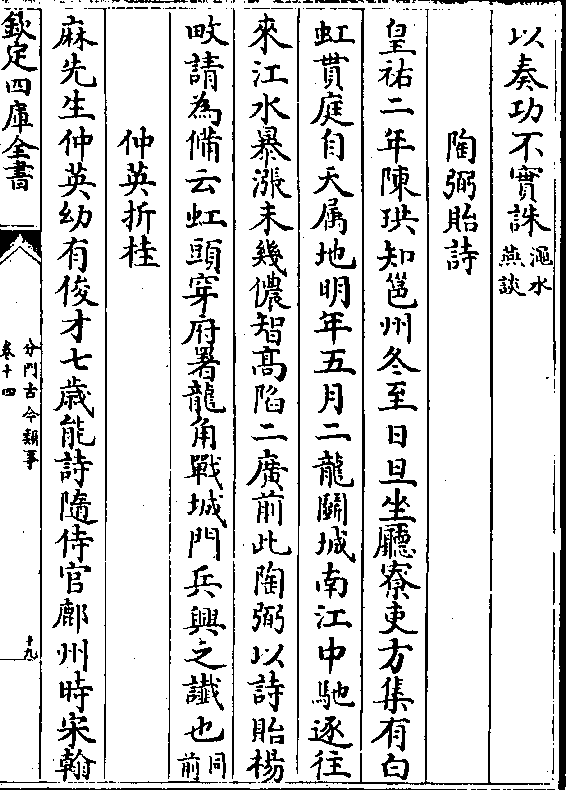 以奏功不實誅澠水燕談
陶弼貽詩
皇祐二年陳珙知邕州冬至日旦坐廳寮吏方集有白
虹貫庭自天属地明年五月二龍鬭城南江中馳逐往
來江水暴漲未幾儂智髙陷二廣前此陶弼以詩貽楊
畋請為備云虹頭穿府署龍角戰城門兵興之讖也同前
仲英折桂
麻先生仲英幼有俊才七歳能詩隨侍官鄜州時宋翰
欽定四庫全書
分門古今類事
卷十四
十九